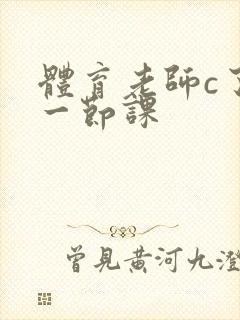 體育老師c了
一節課
曾見黃河九澄